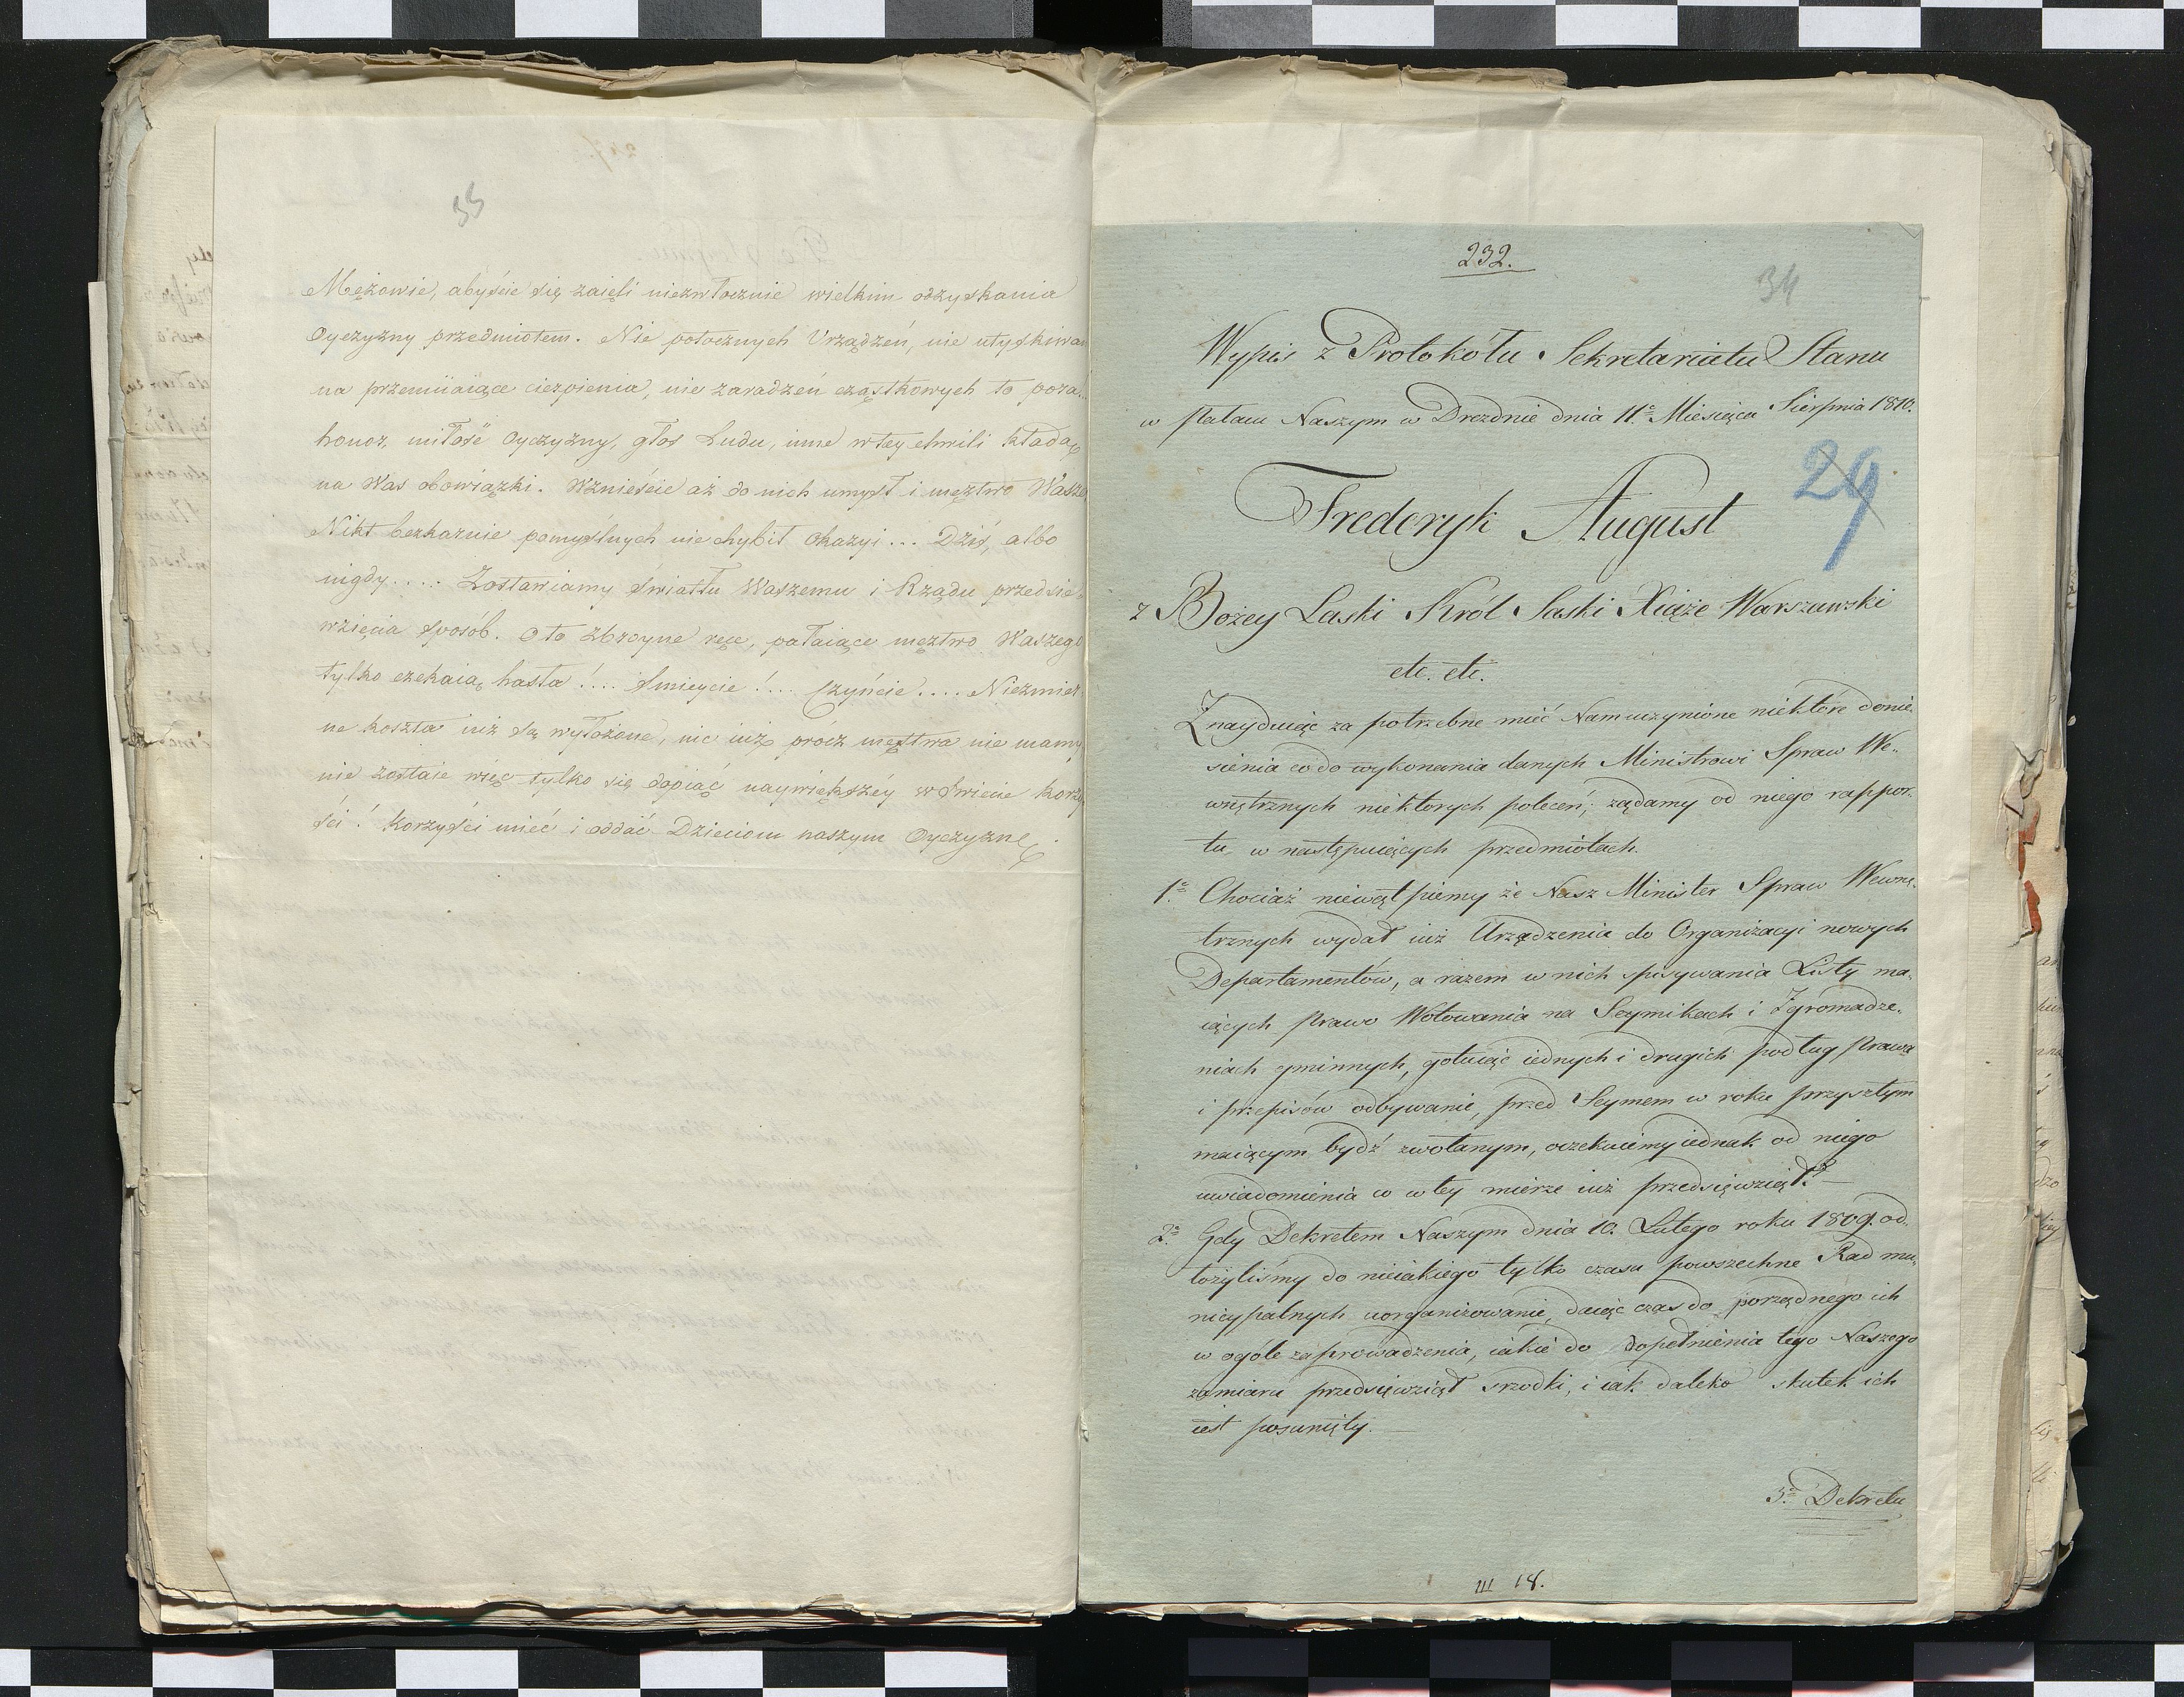 33
Mężowie, abyście się zaięli niezwłocznie wielkim odzyskania
Oyczyzny przedmiotem. Nie potocznych Urządzeń, nie utyskiwań
na przemiiaiące cierpienia, nie zaradzeń cząstkowych to pora.
honor, miłość Oyczyzny, głos Ludu, inne w tey chwili kładą
na Was obowiązki. Wznieście aż do nich umysł i męztwo Wasze
Nikt bezkarnie pomyślnych nie chybił Okazyi... Dziś, albo
nigdy..... Zostawiamy światłu Waszemu i Rządu przedsię-
wzięcia sposób. Oto zbroyne ręce, pałaiące męztwo Waszego
tylko czekaią hasła!.... śmieycie!.... Czyńcie.... Niezmier
ne koszta iuż są wyłożone, nic iuż prócz męstwa nie mamy
nie zostaie więc tylko się dopiąć naywiększéy w świecie korzy
ści! Korzyści mieć i oddać Dzieciom naszym Oyczyznę.
232.
34
Wypis z Protokółu Sekretariatu Stanu
w Pałacu Naszym w Dreznie dnia 11º Miesiąca Sierpnia 1810.
29
Frederyk August
z Bożey Laski Król Saski Xiąże Warszawski
etc. etc.
Znayduiąc za potrzebne mieć Nam uczynione niektóre donie-
sienia co do wykonania danych Ministrowi Spraw We-
wnętrznych niektorych poleceń; żądamy od niego rappor-
tu, w następuiących przedmiotach.
1º Chociaż niewątpiemy że Nasz Minister Spraw Wewnę-
trznych wydał iuż Urządzenia do Organizacyi nowych
Departamentów, a razem w nich spisywania Listy ma-
iących prawo Wotowania na Seymikach i Zgromadze-
niach gminnych, gotuiąc iednych i drugich podług Prawa
i przepisów odbywanie, przed Seymem w roku przyszłym
maiącym bydź zwołanym, oczekuiemy iednak od niego
uwiadomienia co w tey mierze iuż przedsięwziął?—
2º Gdy Dekretem Naszym dnia 10. Lutego roku 1809. od-
łożyliśmy do nieiakiego tylko czasu powszechne Rad mu-
nicypalnych uorganizowanie, daiąc czas do porządnego ich
w ogóle zaprowadzenia, iakie do dopełnienia tego Naszego
zamiaru przedsięwziął srzodki, i iak daleko skutek ich
iest posunięty. —
3º Dekretu
III 18.